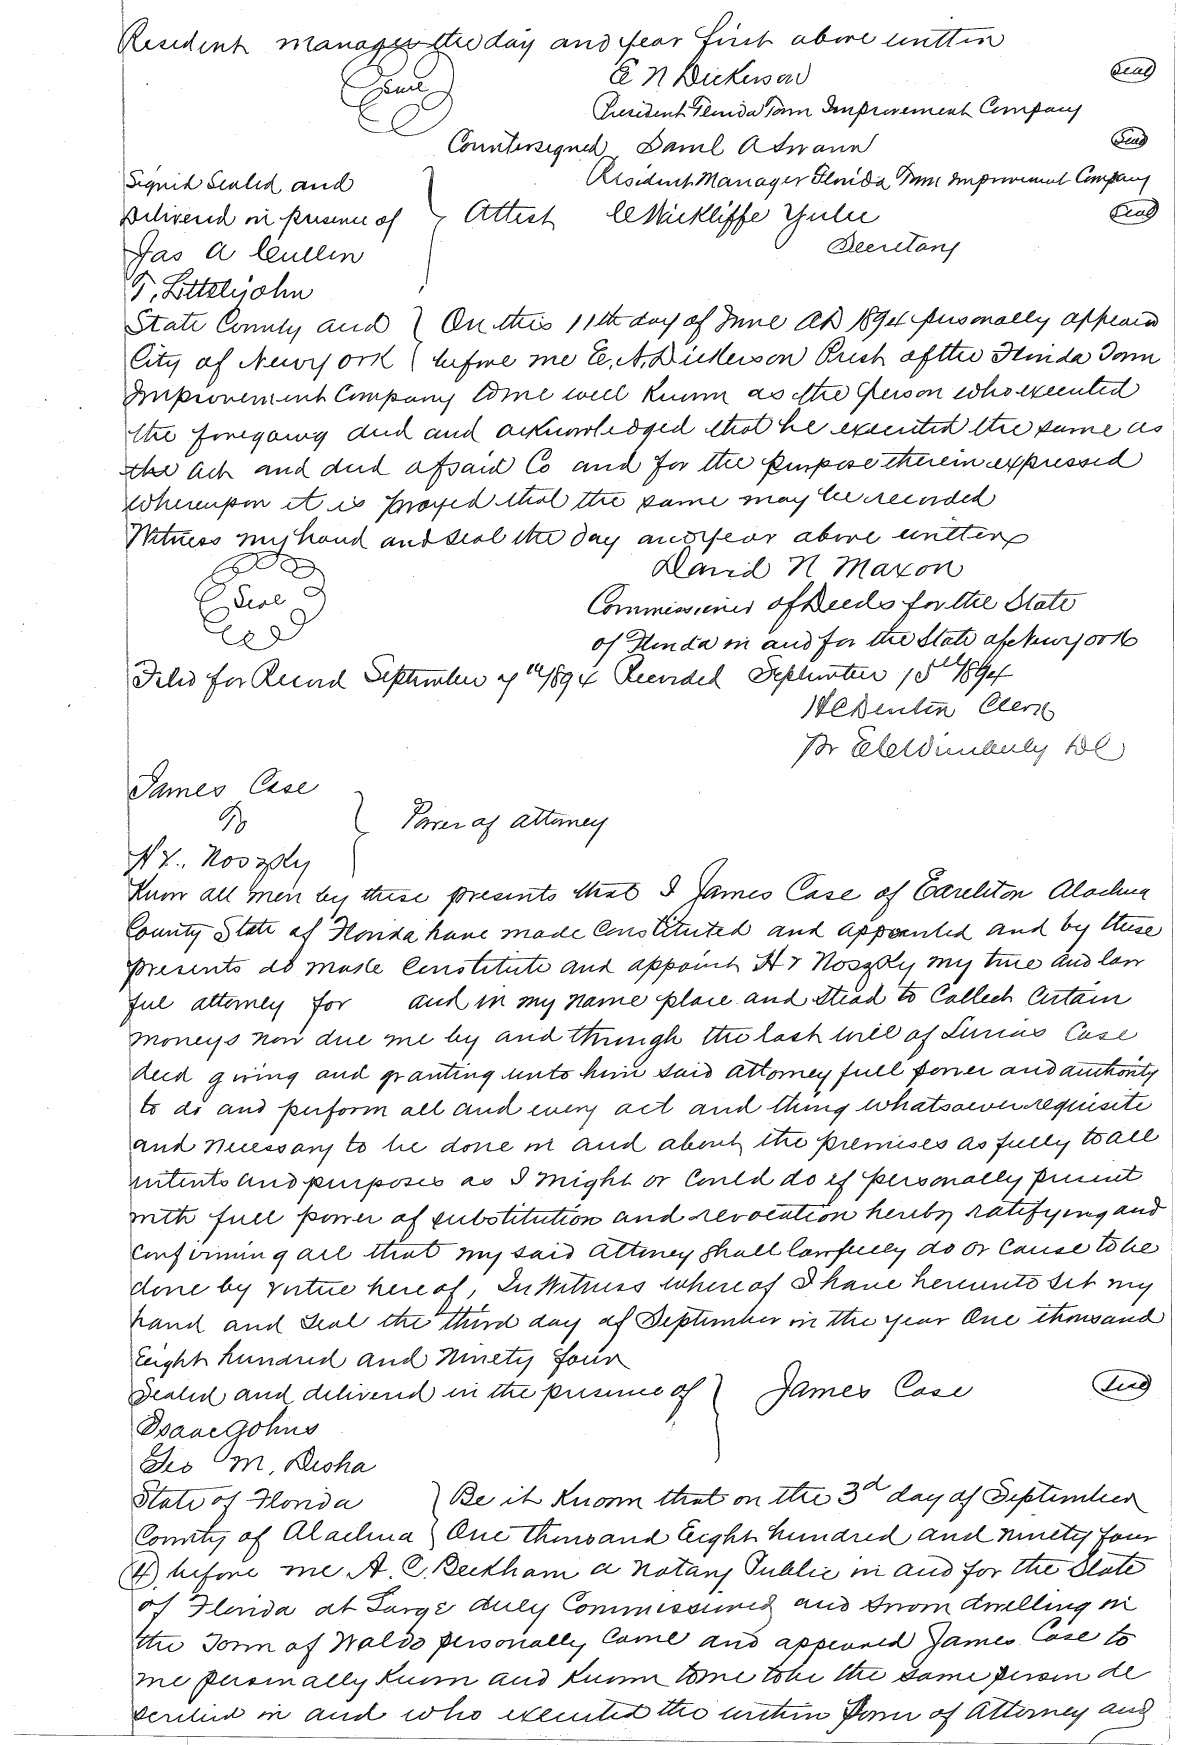 Resident manager the day and year first above written
E N Dickerson Seal
Seal
President Florida Town Improvement Company
Countersigned Danl A Swann Seal
Signed Sealed and Resident Manager Florida Town Improvement Company
Delivered in presence of } Attest C Wickliffe Yulee Seal
Secretary
Jas A Cullen
T. Littlejohn
State County and } On this 11th day of June AD 1894 personally appeared
City of New york } before me E. N. Dickerson Prest of the Florida Town
Improvement Company to me well Known as the person who executed
the foregoing deed and acknowledged that he executed the same as
the act and deed afsaid Co and for the purpose therein expressed
whereupon it is prayed that the same may be recorded
Witness my hand and seal the day and year above written
David N Maxon
Seal
Commissioner of Deeds for the State
of Florida in and for the State of New york
Filed for Record September 7th 1894 Recorded September 15th 1894
H C Denton Clerk
Pr E C Wimberly DC
James Case
To } Power of attorney
H Y. Noszky
Know all men by these presents that I James Case of Earelton Alachua
County State of Florida have made Constituted and appointed and by these
presents do make Constitute and appoint H Y Noszky my true and law
ful attorney for and in my name place and stead to Collect Certain
moneys now due me by and through the last will of Case
decd giving and granting unto him said attorney full power and authority
to do and perform all and every act and thing whatsoever requisite
and necessary to be done in and about the premises as fully to all
intents and purposes as I might or Could do if personally present
with full power of substitution and revocation hereby ratifying and
Confirming all that my said attorney shall lawfully do or cause to be
done by virtue here of, In Witness where of I have hereunto set my
hand and seal the third day of September in the year One thousand
Eight hundred and Ninety four
Sealed and delivered in the presence of } James Case Seal
Isaac Johns
Geo M. Desha
State of Florida } Be it Known that on the 3d day of September
County of Alachua } One thousand Eight hundred and ninety four
(4) before me A. C. Beckham a Notary Public in and for the State
of Florida at Large duly Commissioned and sworn dwelling in
the Town of Waldo personally Came and appeared James Case to
me personally Known and Known to me to be the same person de
scribed in and who executed the within Power of Attorney and